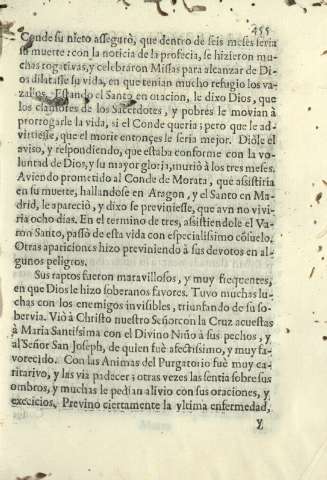 455
Conde su nieto assegurò, que dentro de seis meses seria
su muerte: con la noticia de la profecia, se hizieron mu-
chas rogativas, y celebraron Missas para alcanzar de Di-
os dilatasse su vida, en que tenian mucho refugio los va-
zallos. Estando el Santo en oracion, le dixo Dios, que
los clamores de los Sacerdotes, y pobres le movian à
prorrogarle la vida, si el Conde queria; pero que le ad-
virtiesse, que el morir entonçes le seria mejor. Diòle el
aviso, y respondiendo, que estaba conforme con la vo-
luntad de Dios, y su mayor gloria, muriò à los tres meses.
Aviendo prometido al Conde de Morata, que assistiria
en su muerte, hallandose en Aragon, y el Santo en Ma-
drid, le apareciò, y dixo se previniesse, que avn no vivi-
ria ocho dias. En el termino de tres, assistiendole el Va-
ron Santo, passò de esta vida con especialissimo cõsuelo.
Otras apariciones hizo previniendo à sus devotos en al-
gunos peligros.
Sus raptos fueron maravillosos, y muy frequentes,
en que Dios le hizo soberanos favores. Tuvo muchas lu-
chas con los enemigos invisibles, triunfando de su so-
bervia. Viò à Christo nuestro Señor con la Cruz acuestas
à Maria Santissima con el Divino Niño à sus pechos, y
al Señor San Joseph, de quien fuè afectissimo, y muy fa-
vorecido. Con las Animas del Purgatorio fuè muy ca-
ritativo, y las via padecer; otras vezes las sentia sobre sus
ombros, y muchas le pedian alivio con sus oraciones, y
exercicios. Previno ciertamente la vltima enfermedad,
Y